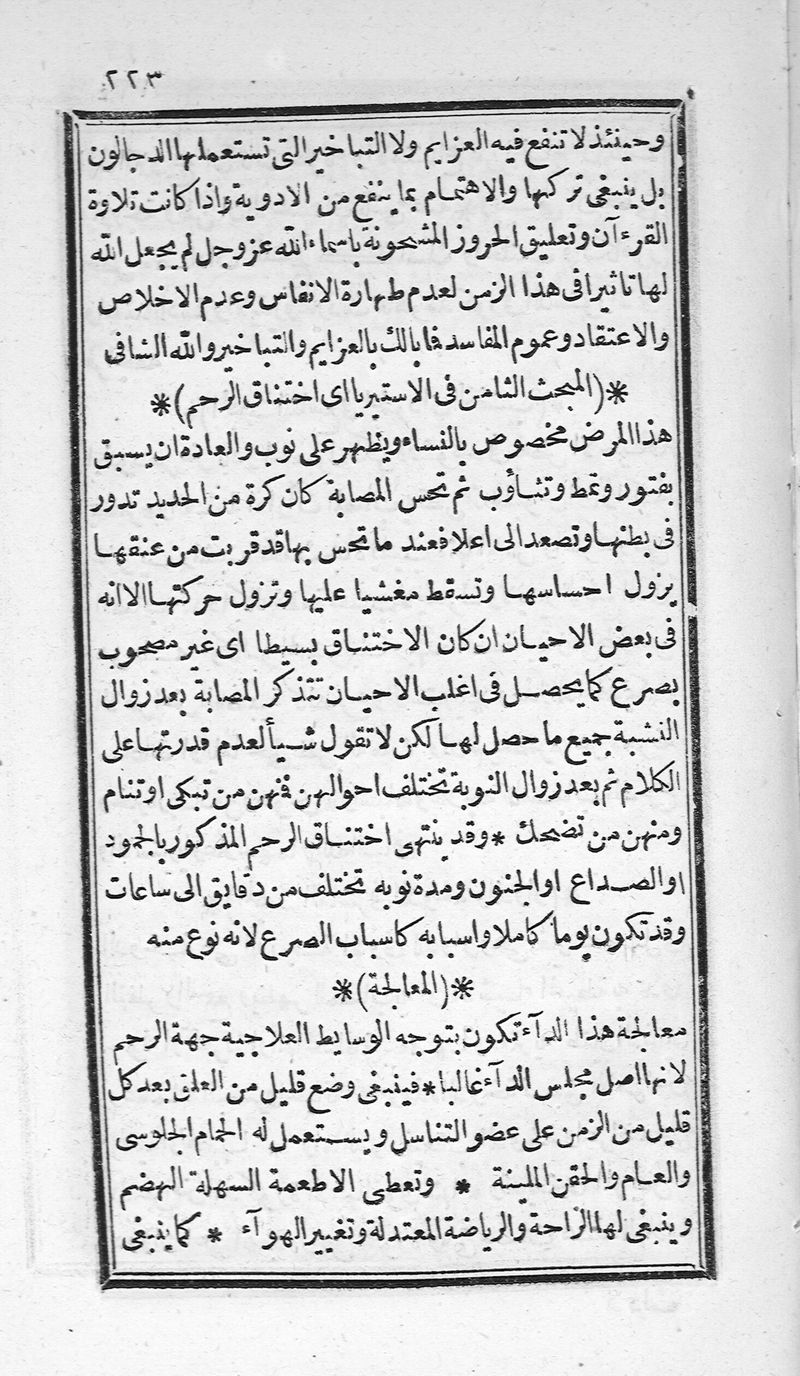 ٢٢٣
وحينئذ لا تنفع فيه العزايم ولا التباخير التى تستعملها الدجالون
بل ينبغى تركها والاهتمام بما ينفع من الادوية واذا كانت تلاوة
القرءآن وتعليق الحروز المشحونة باسماء الله عز وجل لم يجعل الله
لها تاثيرا فى هذا الزمن لعدم طهارة الانفاس وعدم الاخلاص
والاعتقاد وعموم المفاسد فما بالك بالعزايم والتباخير والله الشافى
*(المبحث الثامن فى الاستيريا اى اختناق الرحم)*
هذا المرض مخصوص بالنساء ويظهر على نوب والعادة ان يسبق
بفتور وتمط وتثاؤب ثم تحس المصابة كان كرة من الحديد تدور
فى بطنها وتصعد الى اعلا فعند ما تحس بها قد قربت من عنقها
يزول احساسها وتسقط مغشيا عليها وتزول حركتها الا انه
فى بعض الاحيان ان كان الاختناق بسيطا اى غير مصحوب
بصرع كما يحصل فى اغلب الاحيان تتذكر المصابة بعد زوال
النشبة جميع ما حصل لها لكن لا تقول شيأ لعدم قدرتها على
الكلام ثم بعد زوال النوبة تختلف احوالهن فمنهن من تبكى او تنام
ومنهن من تضحك * وقد ينتهى اختناق الرحم المذكور بالجمود
او الصداع او الجنون ومدة نوبه تختلف من دقايق الى ساعات
وقد تكون يوما كاملا واسبابه كاسباب الصرع لانه نوع منه
*(المعالجة)*
معالجة هذا الدآء تكون بتوجه الوسايط العلاجية جهة الرحم
لانها اصل مجلس الدآء غالبا * فينبغى وضع قليل من العلق بعد كل
قليل من الزمن على عضو التناسل ويستعمل له الحمام الجلوسى
والعام والحقن الملينة * وتعطى الاطعمة السهلة الهضم
وينبغى لها الراحة والرياضة المعتدلة وتغيير الهوآء * كما ينبغى